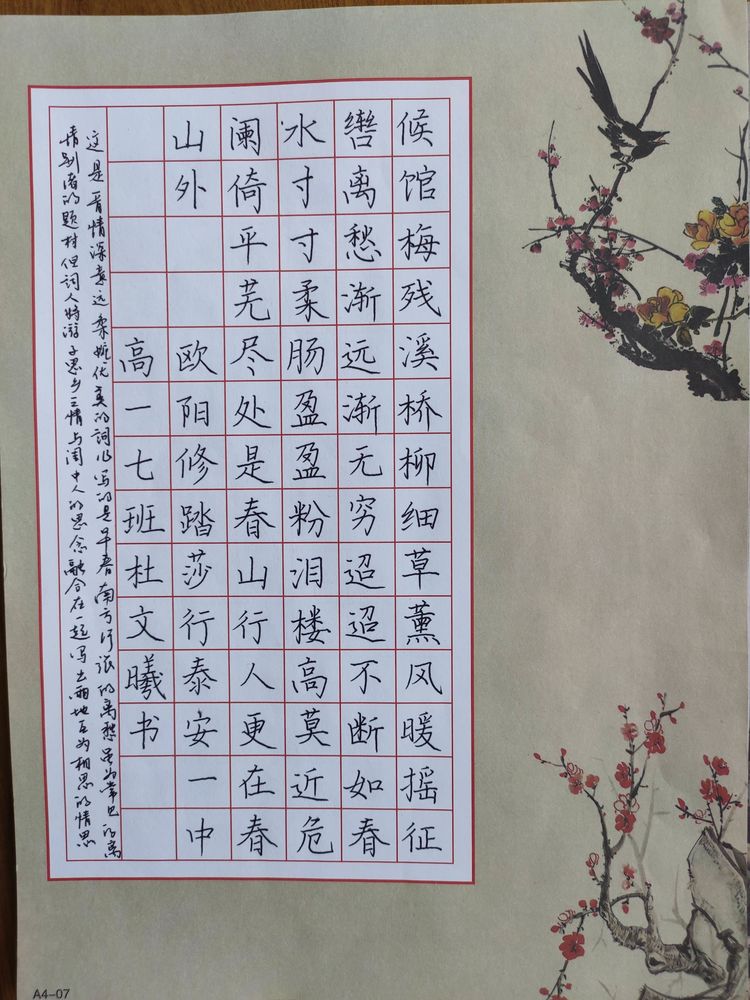 候馆梅残溪桥柳细草薰风暖摇征
辔离愁渐远渐无穷迢迢不断如春
水寸寸柔肠盈盈粉泪楼高莫近危
阑倚平芜尽处是春山行人更在春
山外 欧阳修踏莎行泰安一中
高一七班杜文曦书
这是一首情深意远柔婉优美的词作写的是早春南方行旅的离愁虽为常见的离
情别绪的题材但词人将游子思乡之情与闺中人的思念融合在一起写出两地互为相思的情思
A4-07